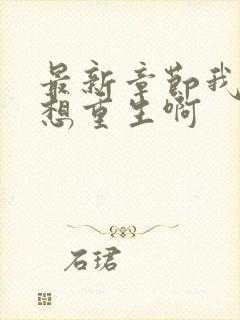 最新章节我
想重生啊
石珺